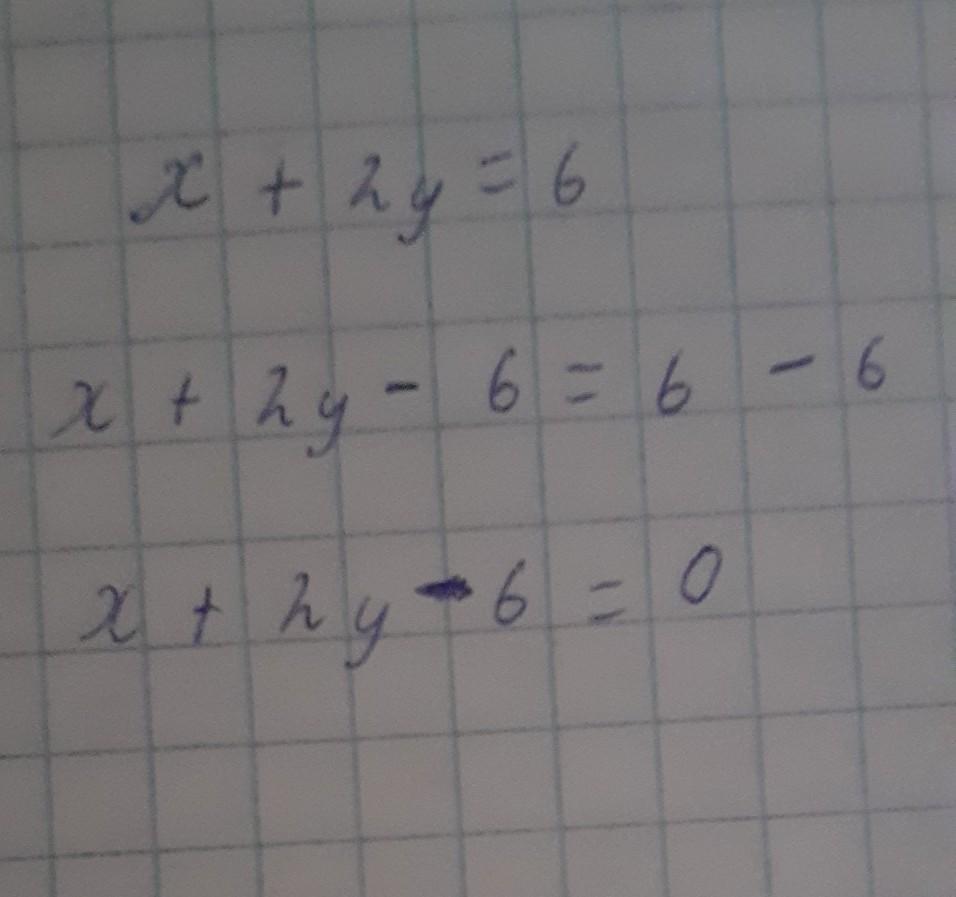 x + 2y = 6
x + 2y - 6 = 6 - 6
x + 2y - 6 = 0